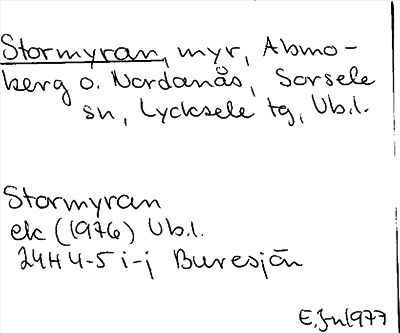 Stormyran, myr, Abmo-
berg o. Nordanås, Sorsele
sn, Lycksele tg, Vb.l.
Stormyran
ek (1976) Vb.l.
24H 4-5 i-j Buresjön
E.Jn 1977